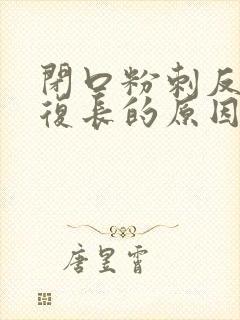 閉口粉刺反
復長的原因
唐昱霄